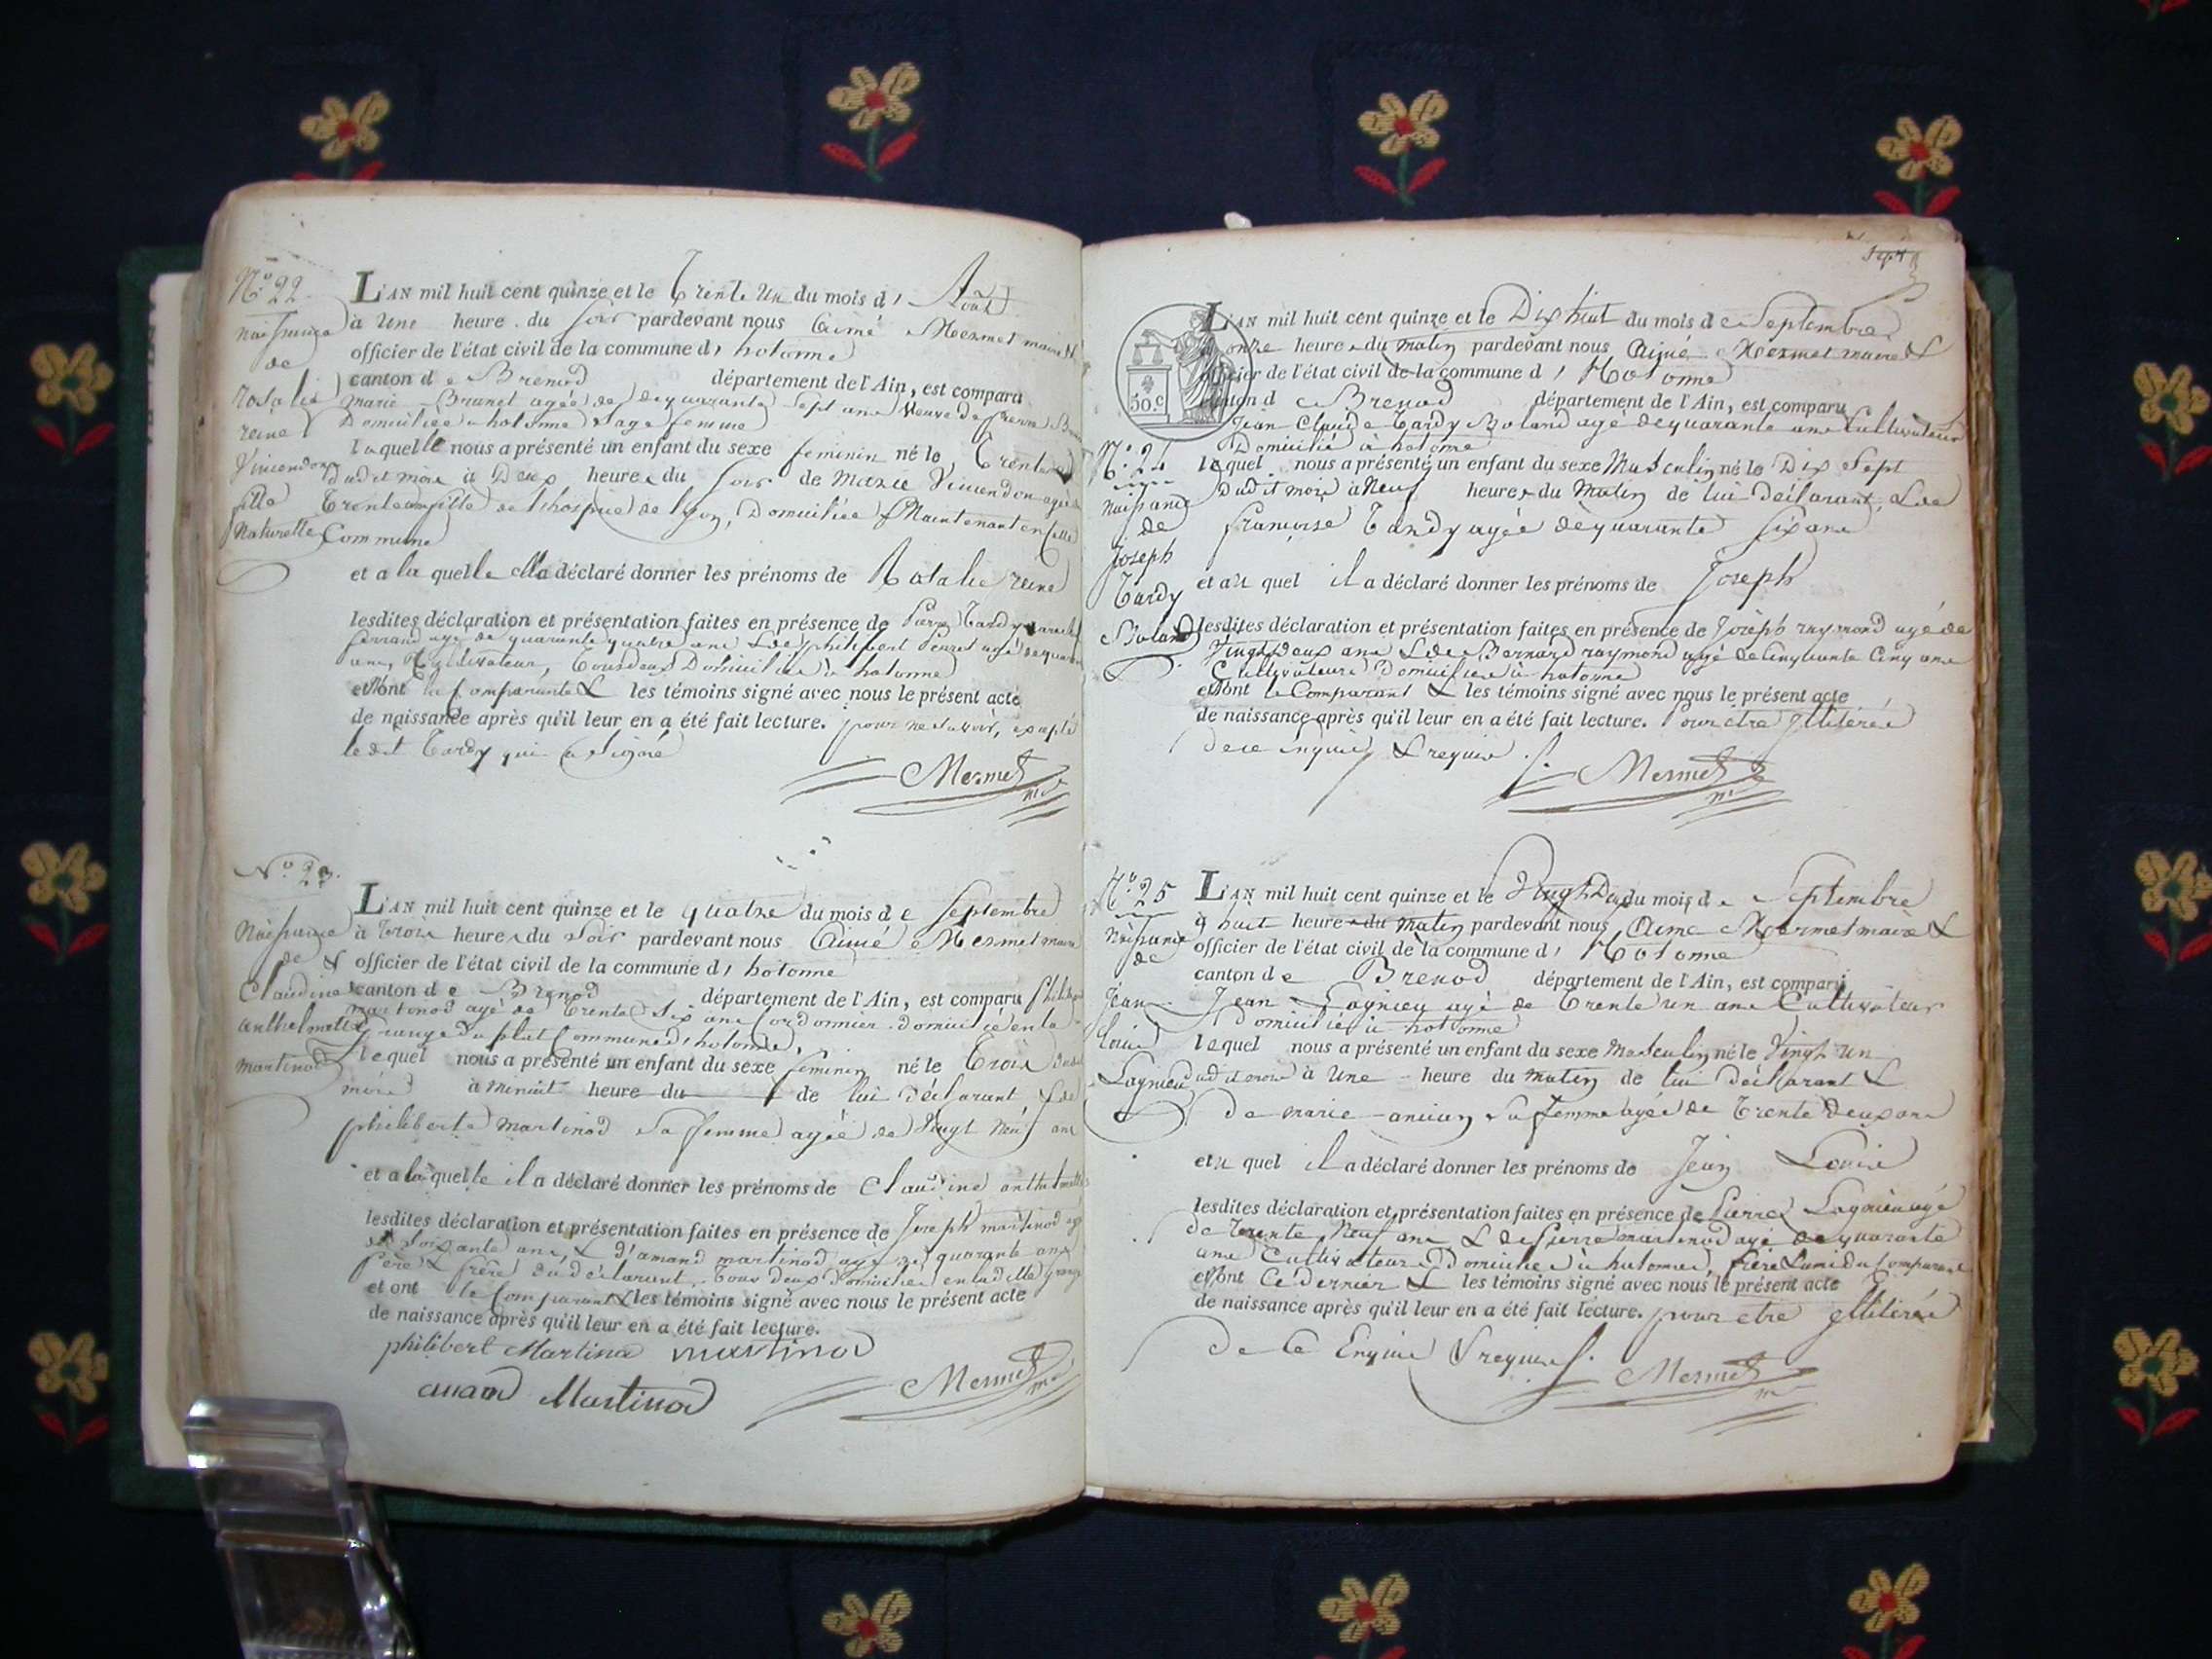 N.o 22
naissance
de
rosalie
reine
Vincendon
fille
Naturelle
L'AN mil huit cent quinze et le Trente Un du mois d' Août
à Une heure du soir pardevant nous Aimé Mermet maire &
officier de l'état civil de la commune d' hotonne
canton de Brenod département de l'Ain, est comparu
marie Brunet agée de quarante sept ans Veuve de pierre
Domiciliée a hotonne sage femme
laquelle nous a présenté un enfant du sexe feminin né le Trente
dudit mois à Deux heure du soir de Marie Vincendon agée
Trente un fille de lhospice de lyon, Domiciliée Maintenant en cette
Commune
et a la quelle elle a déclaré donner les prénoms de Rosalie reine
lesdites déclaration et présentation faites en présence de Pierre Tardy
ferrand agé de quarante quatre ans & de philibert Perret agé de
ans, Cultivateur, Tous deux Domiciliés à hotonne
et n'ont la Comparante & les témoins signé avec nous le présent acte
de naissance après qu'il leur en a été fait lecture. pour ne savoir, excepté
le dit Tardy qui a signé
Mermet
N.o 23.
Naissance
de
Claudine
anthelmette
martinod
L'AN mil huit cent quinze et le quatre du mois de Septembre
à trois heure du soir pardevant nous Aimé Mermet maire
& officier de l'état civil de la commune d' hotonne
canton de Brenod département de l'Ain, est comparu philibert
martinod agé de Trente Six ans Cordonnier domicilié en la
Grange du plat Commune d'hotonne,
lequel nous a présenté un enfant du sexe feminin né le Trois dudit
mois à minuit heure du de lui déclarant & de
philiberte martinod sa femme agée de Vingt Neuf ans
et a laquelle il a déclaré donner les prénoms de Claudine anthelmette
lesdites déclaration et présentation faites en présence de Joseph martinod agé
de soixante ans, & d'amand martinod agé de quarante ans
père & frère du déclarant, Tous deux Domiciliés en ladite grange
et ont le Comparant & les témoins signé avec nous le présent acte
de naissance après qu'il leur en a été fait lecture.
philibert Martinod martinod
amand Martinod
Mermet
Sept
50.c
N.o 24
naissance
de
Joseph
Tardy
Roland
L'AN mil huit cent quinze et le Dix huit du mois de Septembre
à onze heure du matin pardevant nous Aimé Mermet maire &
officier de l'état civil de la commune d' Hotonne
canton de Brenod département de l'Ain, est comparu
Jean Claude Tardy Roland agé de quarante ans Cultivateur
Domicilié à hotonne
lequel nous a présenté un enfant du sexe Masculin né le Dix Sept
dudit mois à Neuf heure du Matin de lui déclarant, & de
françoise Tardy agée de quarante Six ans
et au quel il a déclaré donner les prénoms de Joseph
lesdites déclaration et présentation faites en présence de Joseph raymond agé de
Vingt deux ans & de Bernard raymond agé de Cinquante Cinq ans
Cultivateurs Domiciliés à hotonne
et n'ont le Comparant & les témoins signé avec nous le présent acte
de naissance après qu'il leur en a été fait lecture. Pour etre illitérés
de ce enquis & requis
Mermet
N.o 25
naissance
de
Jean
louis
Lagnieu
L'AN mil huit cent quinze et le Vingt Deux du mois de Septembre
à huit heure du Matin pardevant nous Aimé Mermet maire &
officier de l'état civil de la commune d' Hotonne
canton de Brenod département de l'Ain, est comparu
Jean Lagnieu agé de Trente un ans Cultivateur
Domicilié à hotonne
lequel nous a présenté un enfant du sexe Masculin né le Vingt Un
dudit mois à Une heure du matin de lui déclarant &
de marie ancian sa femme agée de Trente deux ans
et au quel il a déclaré donner les prénoms de Jean Louis
lesdites déclaration et présentation faites en présence de Pierre Lagnieu agé
de Trente Neuf ans & de pierre martinod agé de quarante
ans Cultivateurs Domiciliés à hotonne, frère & ami du Comparant
et n'ont Ce dernier & les témoins signé avec nous le présent acte
de naissance après qu'il leur en a été fait lecture. pour etre illitérés
de Ce Enquis & requis
Mermet